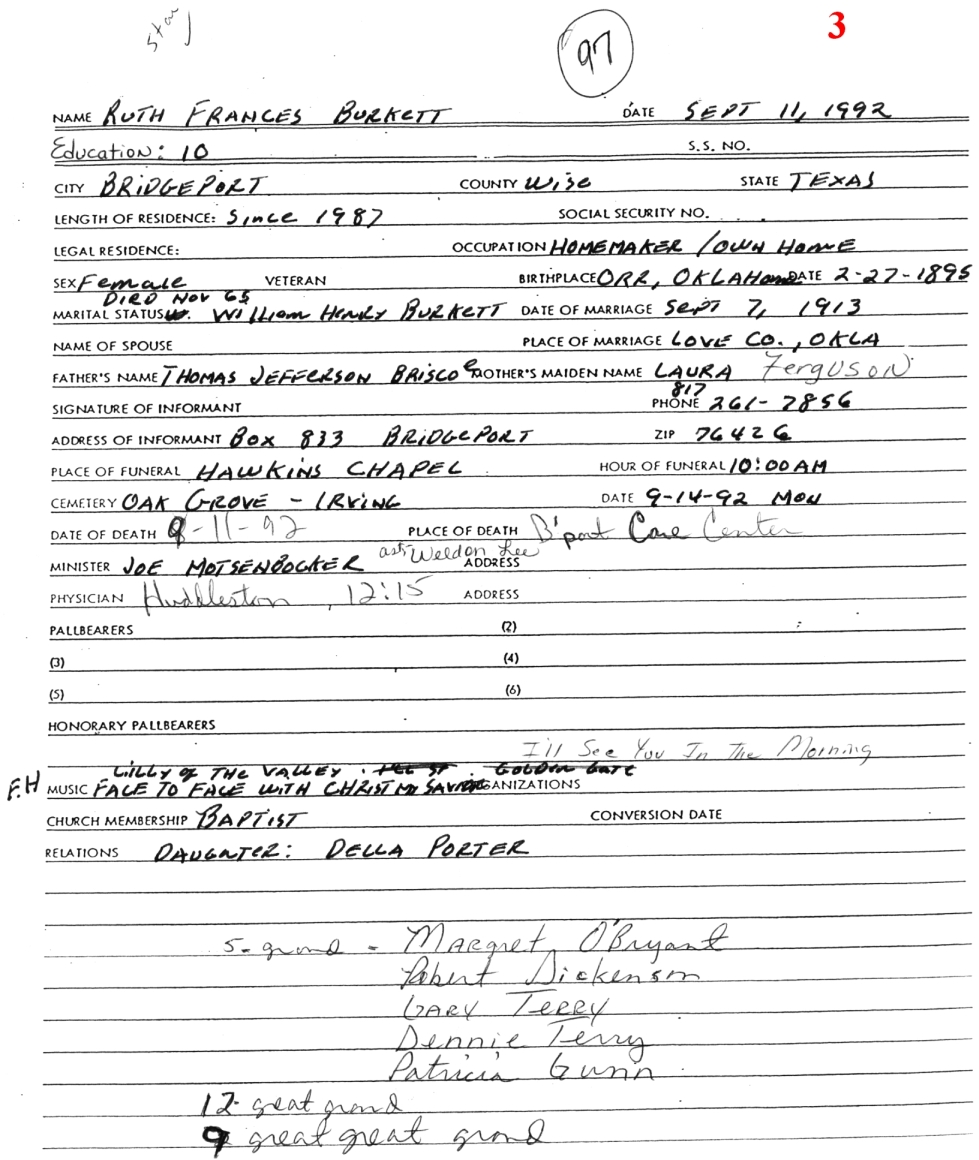 Star
97
3
NAME RUTH FRANCES BURKETT DATE SEPT 11, 1992
Education: 10 S.S. NO.
CITY BRIDGEPORT COUNTY Wise STATE TEXAS
LENGTH OF RESIDENCE: Since 1987 SOCIAL SECURITY NO.
LEGAL RESIDENCE: OCCUPATION HOMEMAKER / OWN HOME
SEX Female VETERAN BIRTHPLACE ORR, OKLAHOMA DATE 2-27-1895
DIED NOV 65
MARITAL STATUS W. William Henry BURKETT DATE OF MARRIAGE SEPT 7, 1913
NAME OF SPOUSE PLACE OF MARRIAGE LOVE CO., OKLA
FATHER'S NAME THOMAS JEFFERSON BRISCOe MOTHER'S MAIDEN NAME LAURA Ferguson
SIGNATURE OF INFORMANT PHONE 817 261-7856
ADDRESS OF INFORMANT BOX 833 BRIDGEPORT ZIP 76426
PLACE OF FUNERAL HAWKINS CHAPEL HOUR OF FUNERAL 10:00 AM
CEMETERY OAK GROVE - IRVING DATE 9-14-92 MON
DATE OF DEATH 9-11-92 PLACE OF DEATH B'port Care Center
MINISTER JOE MOTSENBOCKER asst Weldon Lee ADDRESS
PHYSICIAN Huddleston, 12:15 ADDRESS
PALLBEARERS (2)
(3) (4)
(5) (6)
HONORARY PALLBEARERS
I'll See You In The Morning
LILLY of THE VALLEY . GOLDEN GATE
F.H MUSIC FACE TO FACE WITH CHRIST MY SAVIOR ORGANIZATIONS
CHURCH MEMBERSHIP BAPTIST CONVERSION DATE
RELATIONS DAUGHTER: DELLA PORTER
5- grand - Margret O'Bryant
Robert Dickenson
GARY TERRY
Dennie Terry
Patricia Gunn
12- great grand
9 great great grand